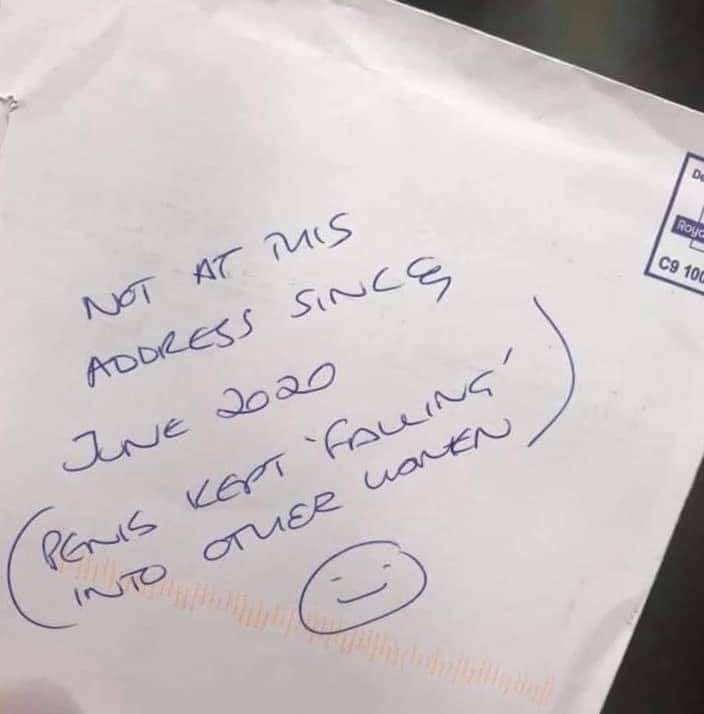 NOT AT THIS
ADDRESS SINCE
JUNE 2020
(PENIS KEPT 'FALLING'
INTO OTHER WOMEN)
De
Roya
C9 100